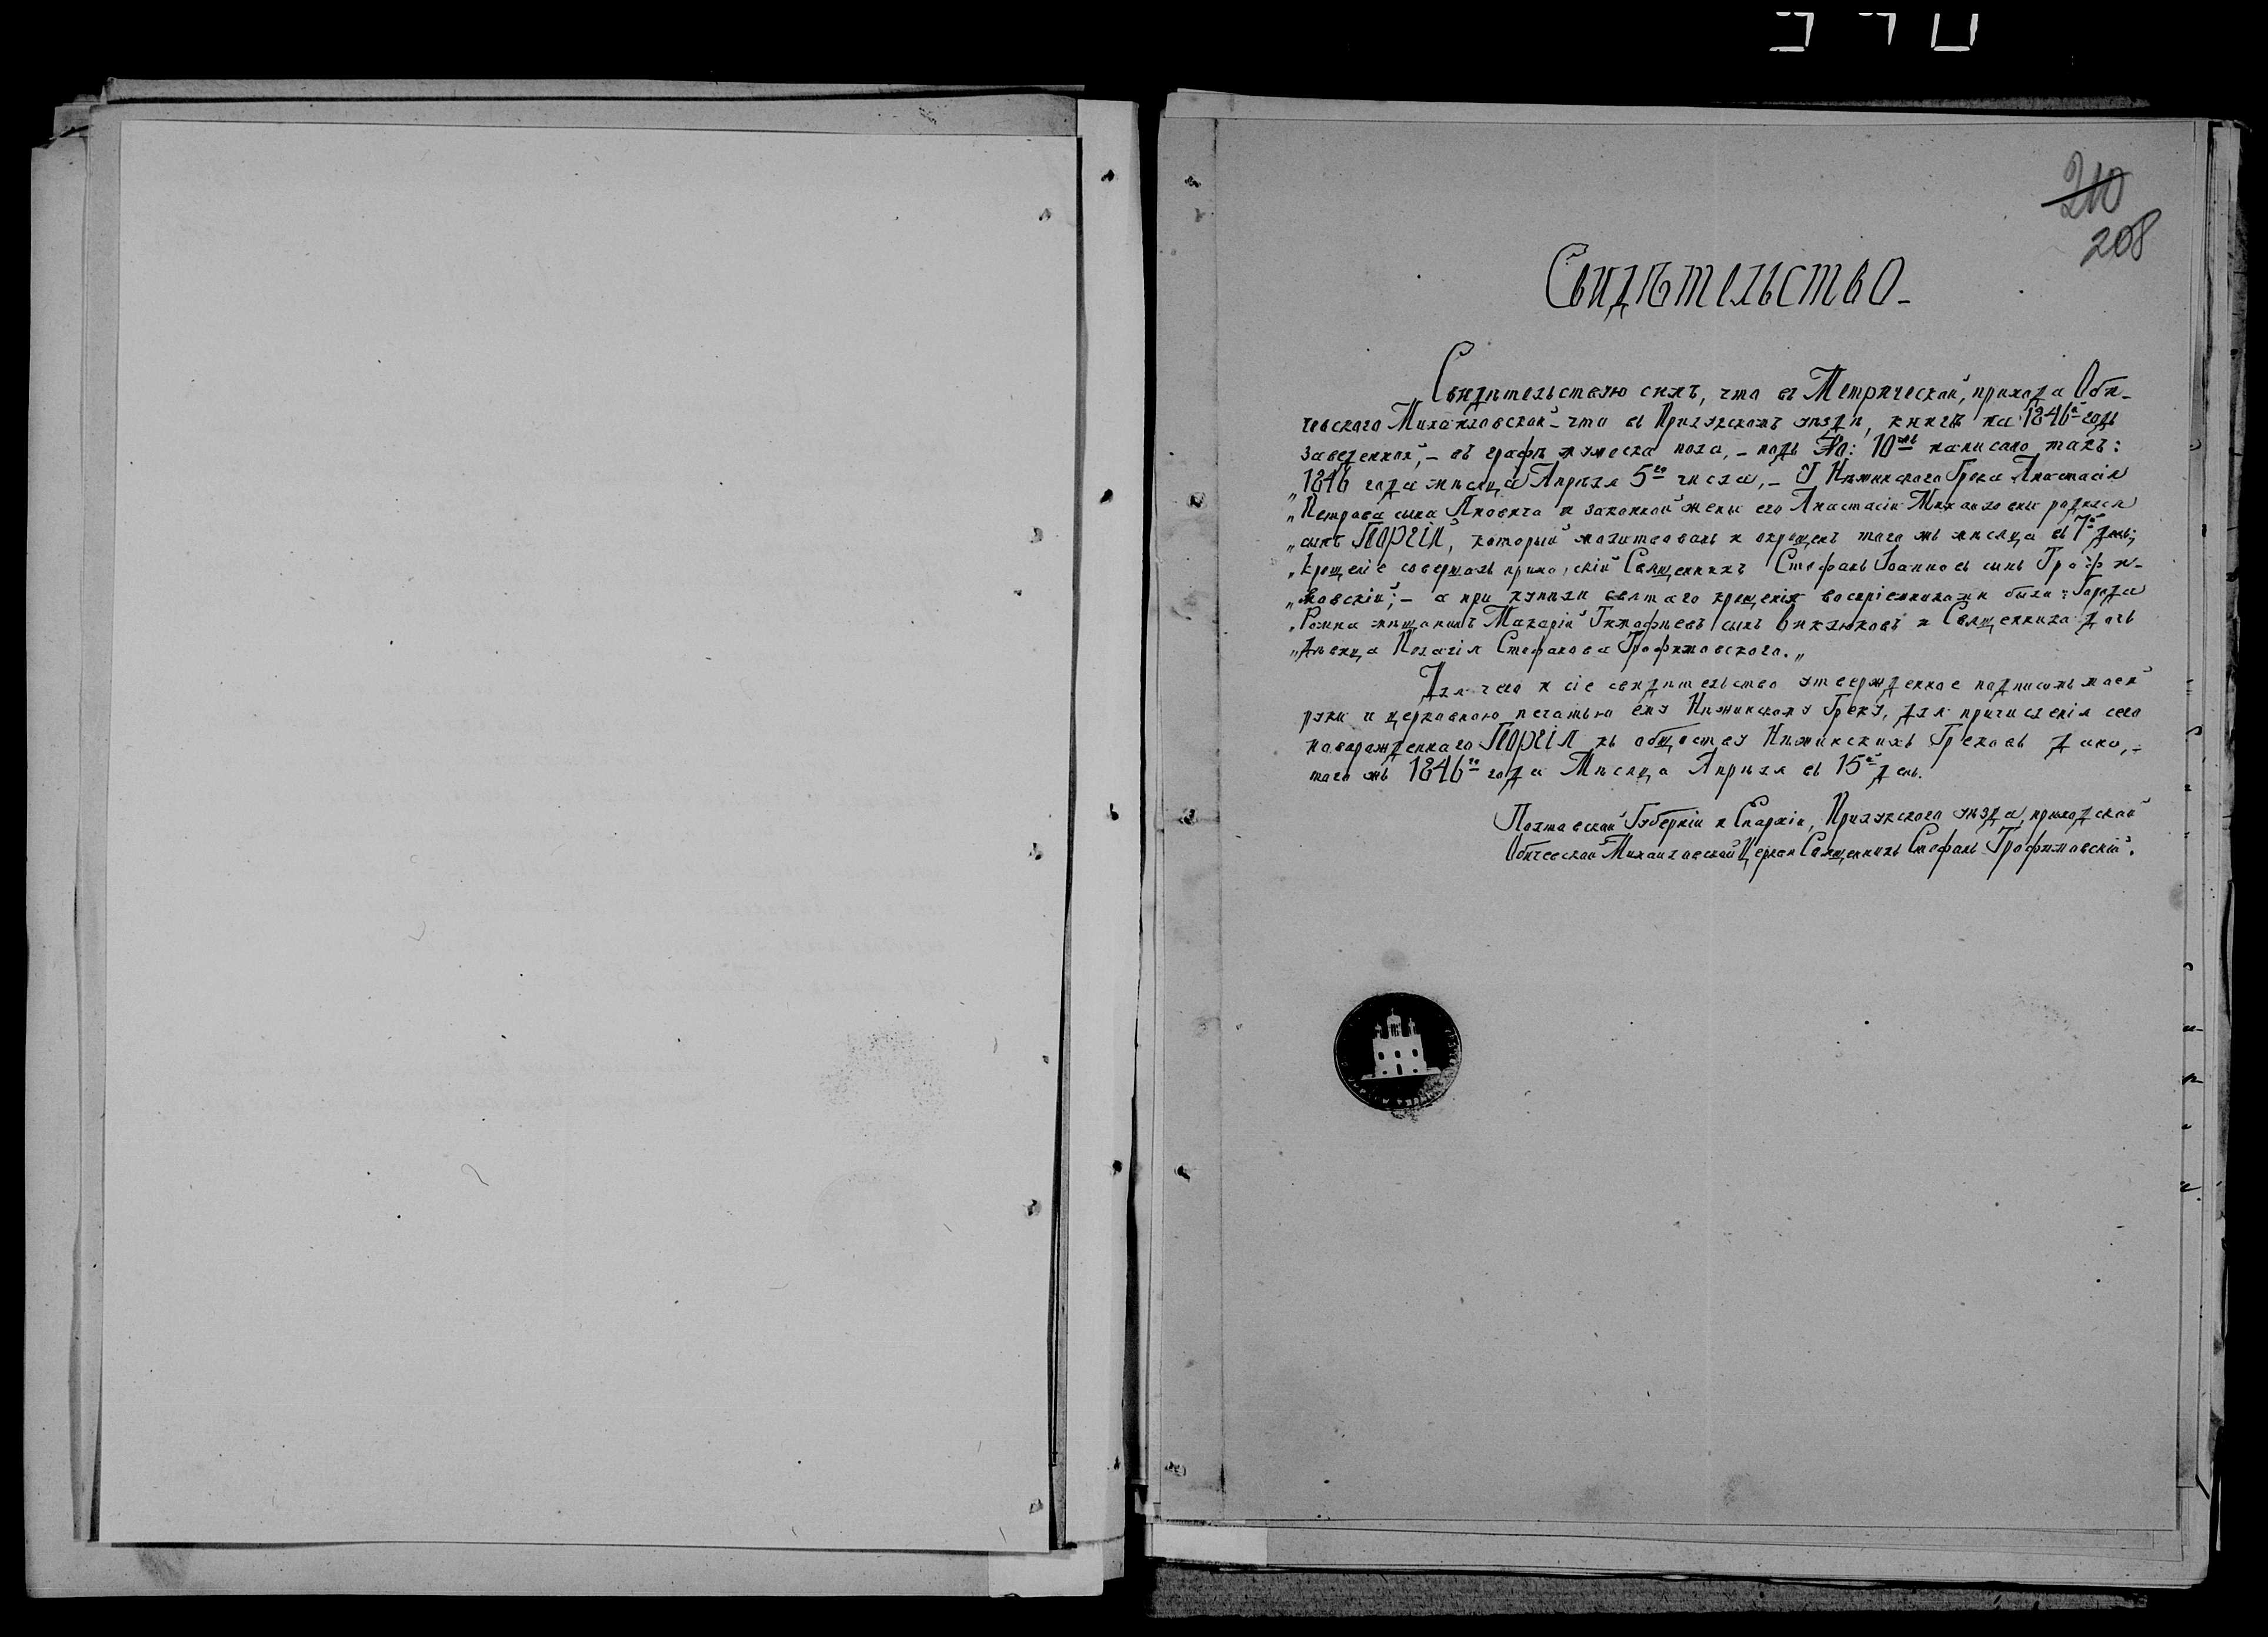 210
208
Свидѣтельство
Свидѣтельствую симъ, что въ Метрической, прихода Оби-
чевского Михайловской - что въ Прилукскомъ уѣздѣ, книгѣ на 1846й годъ
заведенной, - въ графѣ мужеска пола, - подъ №: 10мъ написано такъ:
„1846 года мѣсяца Апрѣля 5го числа, - У Нѣжинского Грека Анастасія
„Петрова сына Яновича и законной жены его Анастасіи Михайловны родился
„сынъ Георгій, который молитвованъ и окрещенъ того жъ мѣсяца въ 7й день;
„Крещеніе совершалъ прихо. скій Священникъ Стефанъ Іоанновъ сынъ Трофи-
„мовскій; - а при купели святаго крещенія воспріемниками были: Города
„Ромна мѣщанинъ Макарій Тимофѣевъ сынъ и Священника дочь
„дѣвица Пелагія Стефанова Трофимовского.„
Для чего и сіе свидѣтельство утвержденное подписомъ моей
руки и церковною печатью ему Нѣжинскому Греку, для причисленія сего
новорожденнаго Георгія къ обществу Нѣжинскихъ Грековъ дано, -
того жъ 1846го года Мѣсяца Апрѣля въ 15й день.
Полтавской Губерніи и Епархіи, Прилукского уѣзда, приходской
Обичевской Михайловской Церкви Священникъ Стефанъ Трофимовскій.